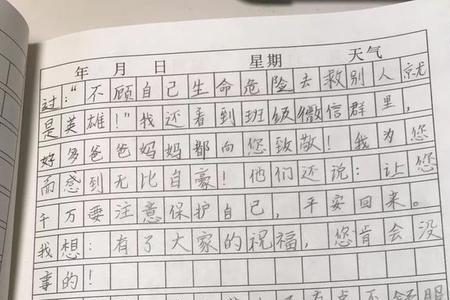 年 月 日 星期 天气
过：“不顾自己生命危险去救别人就
是英雄！”我还看到班级微信群里，
好多爸爸妈妈都向您致敬！我为您
而感到无比自豪！他们还说：让您
千万要注意保护自己，平安回来。
我想：有了大家的祝福，您肯会没
事的！